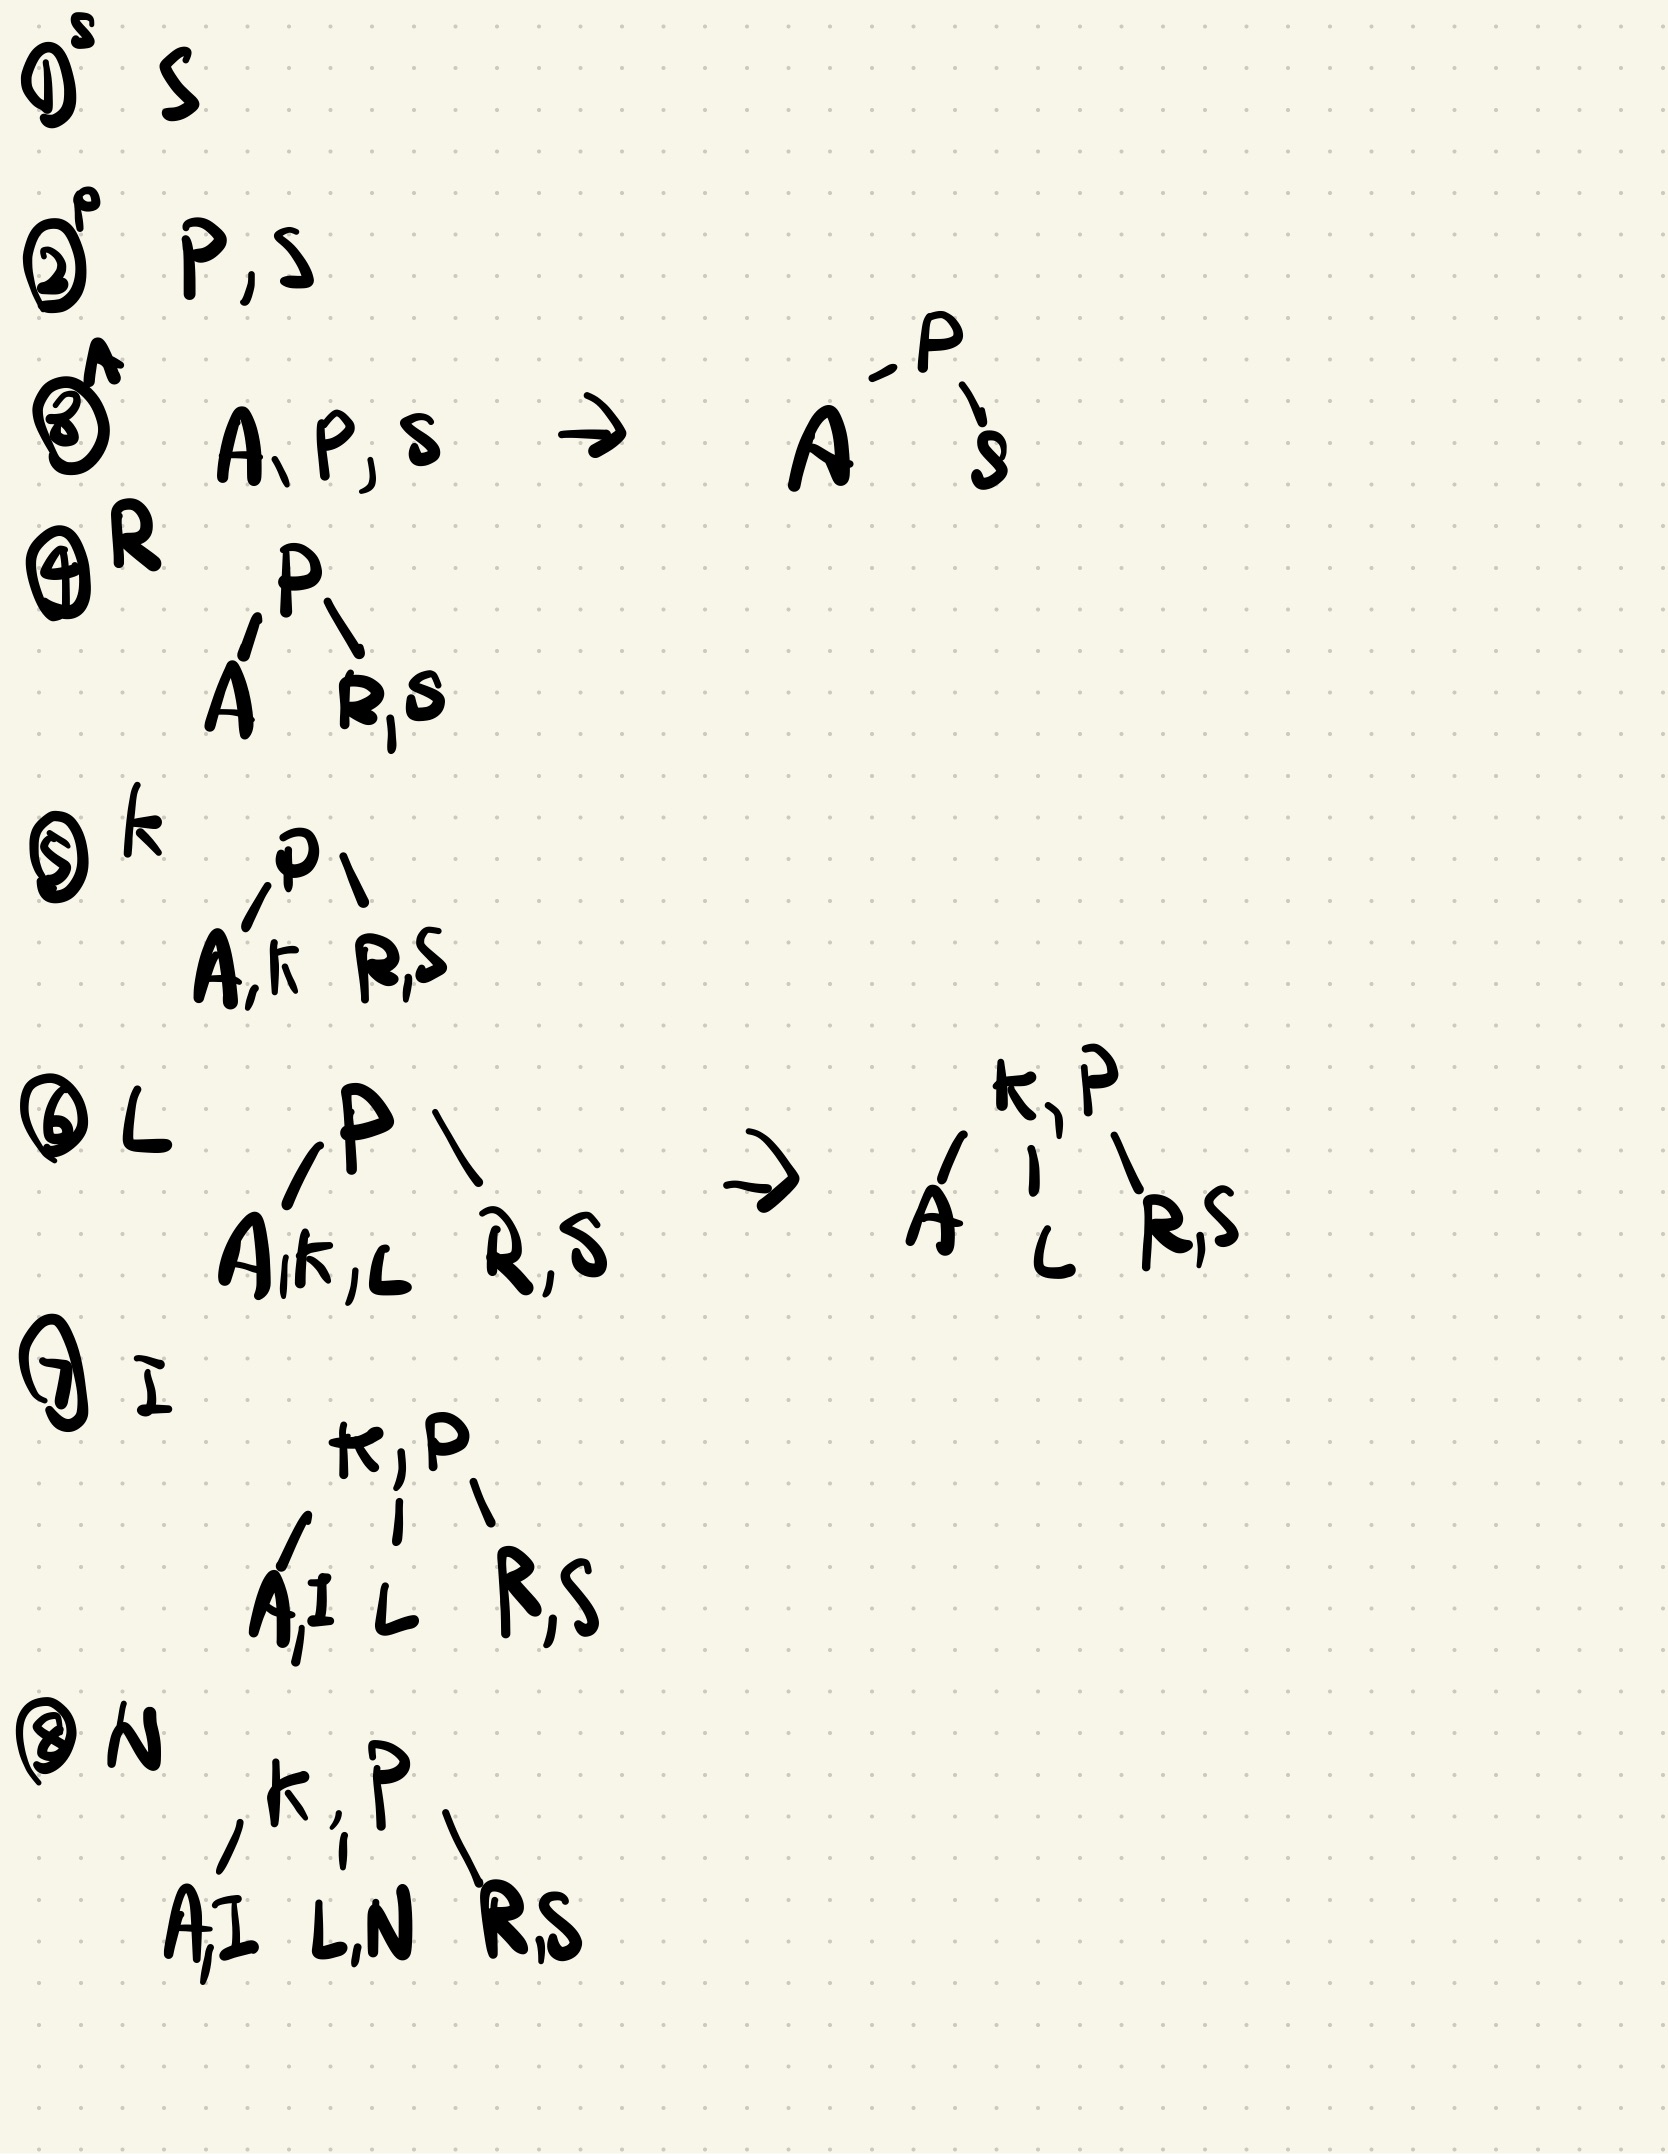 ① S S
② P P, S
③ A A, P, S → P
A S
④ R P
A R, S
⑤ K P
A, K R, S
⑥ L P → K, P
A, K, L R, S A L R, S
⑦ I
K, P
A, I L R, S
⑧ N
K, P
A, I L, N R, S